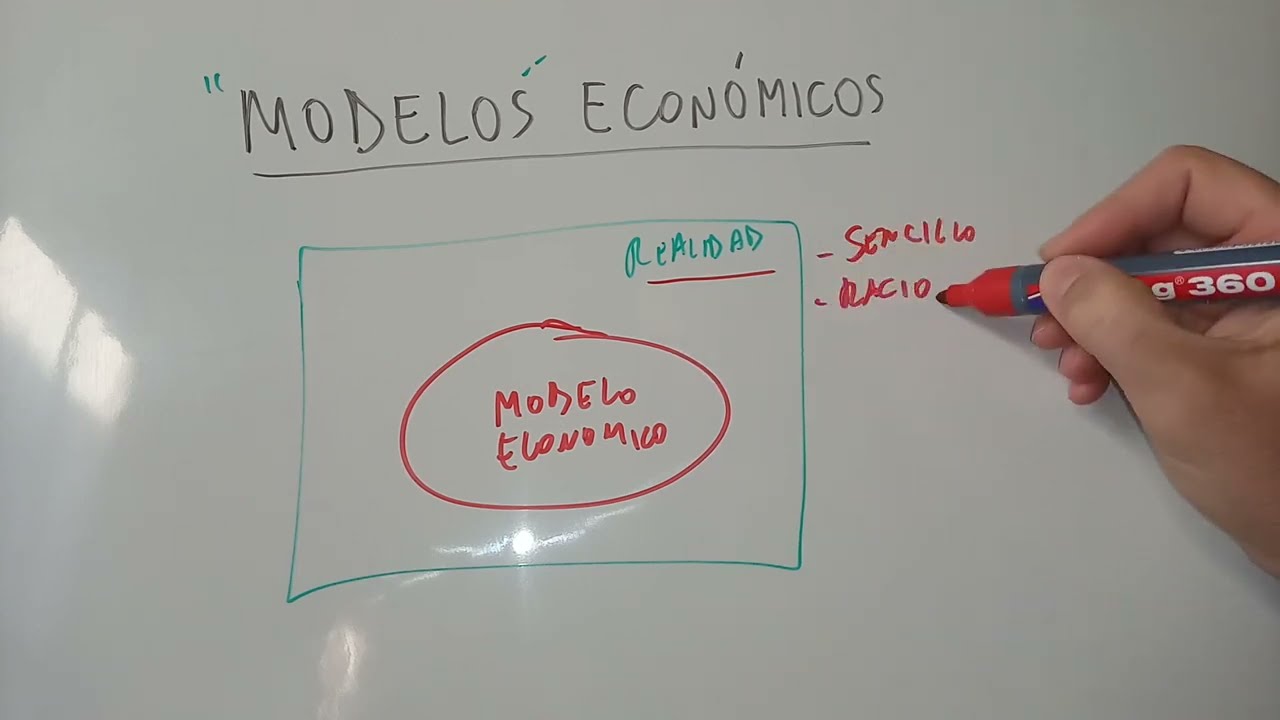 "MODELOS" ECONÓMICOS
REALIDAD
- SENCILLO
- RACIO
g® 360
MODELO
ECONOMICO